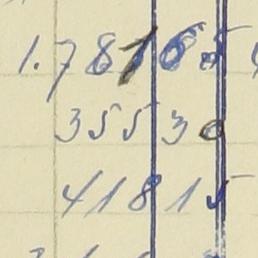 1.78165
35530
41815